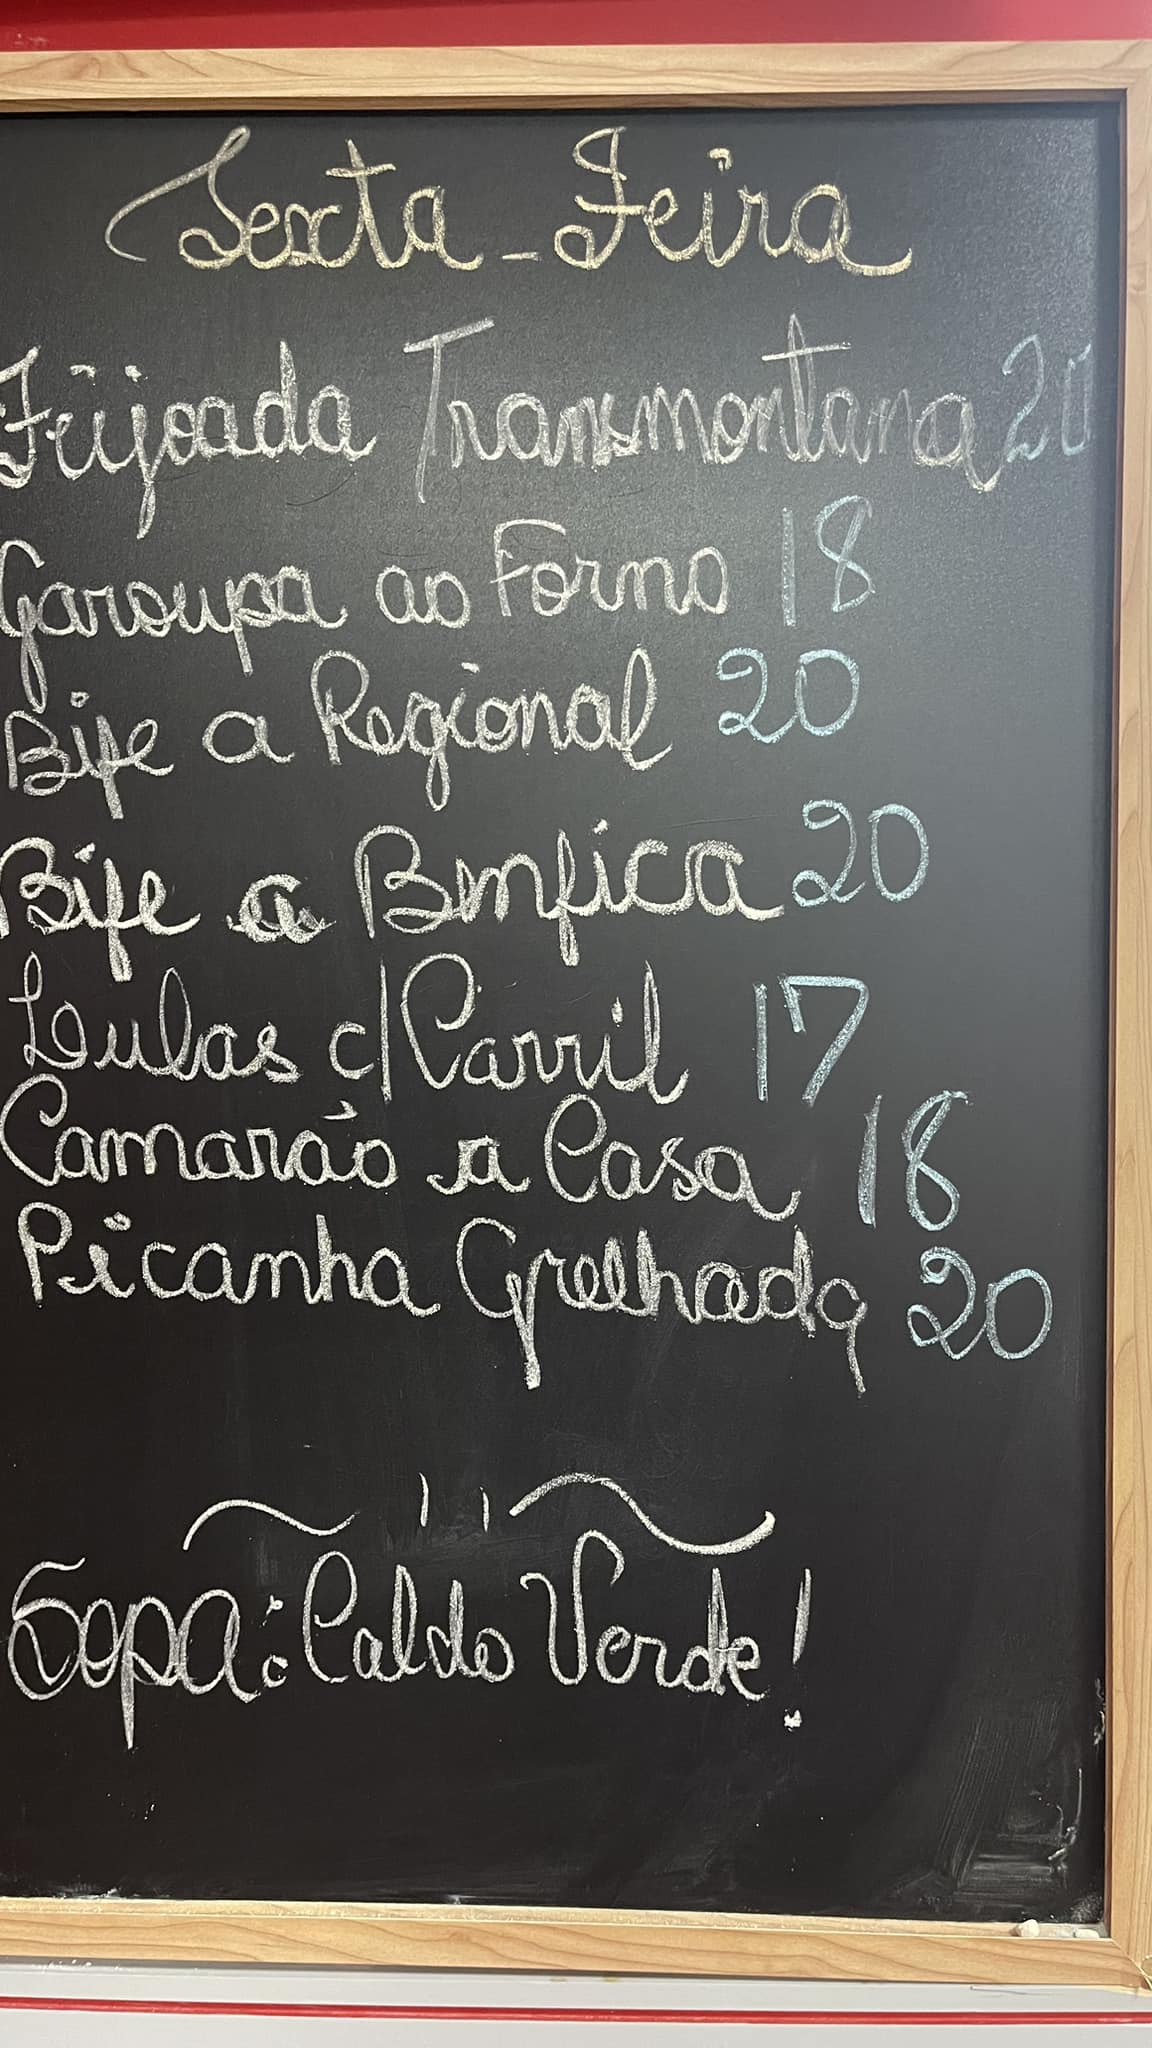 Sexta-Feira
Feijoada Transmontana 20
Garoupa ao Forno 18
Bife a Regional 20
Bife a Benfica 20
Lulas c/ Carril 17
Camarão a Casa 18
Picanha Grelhada 20
Sopa: Caldo Verde!